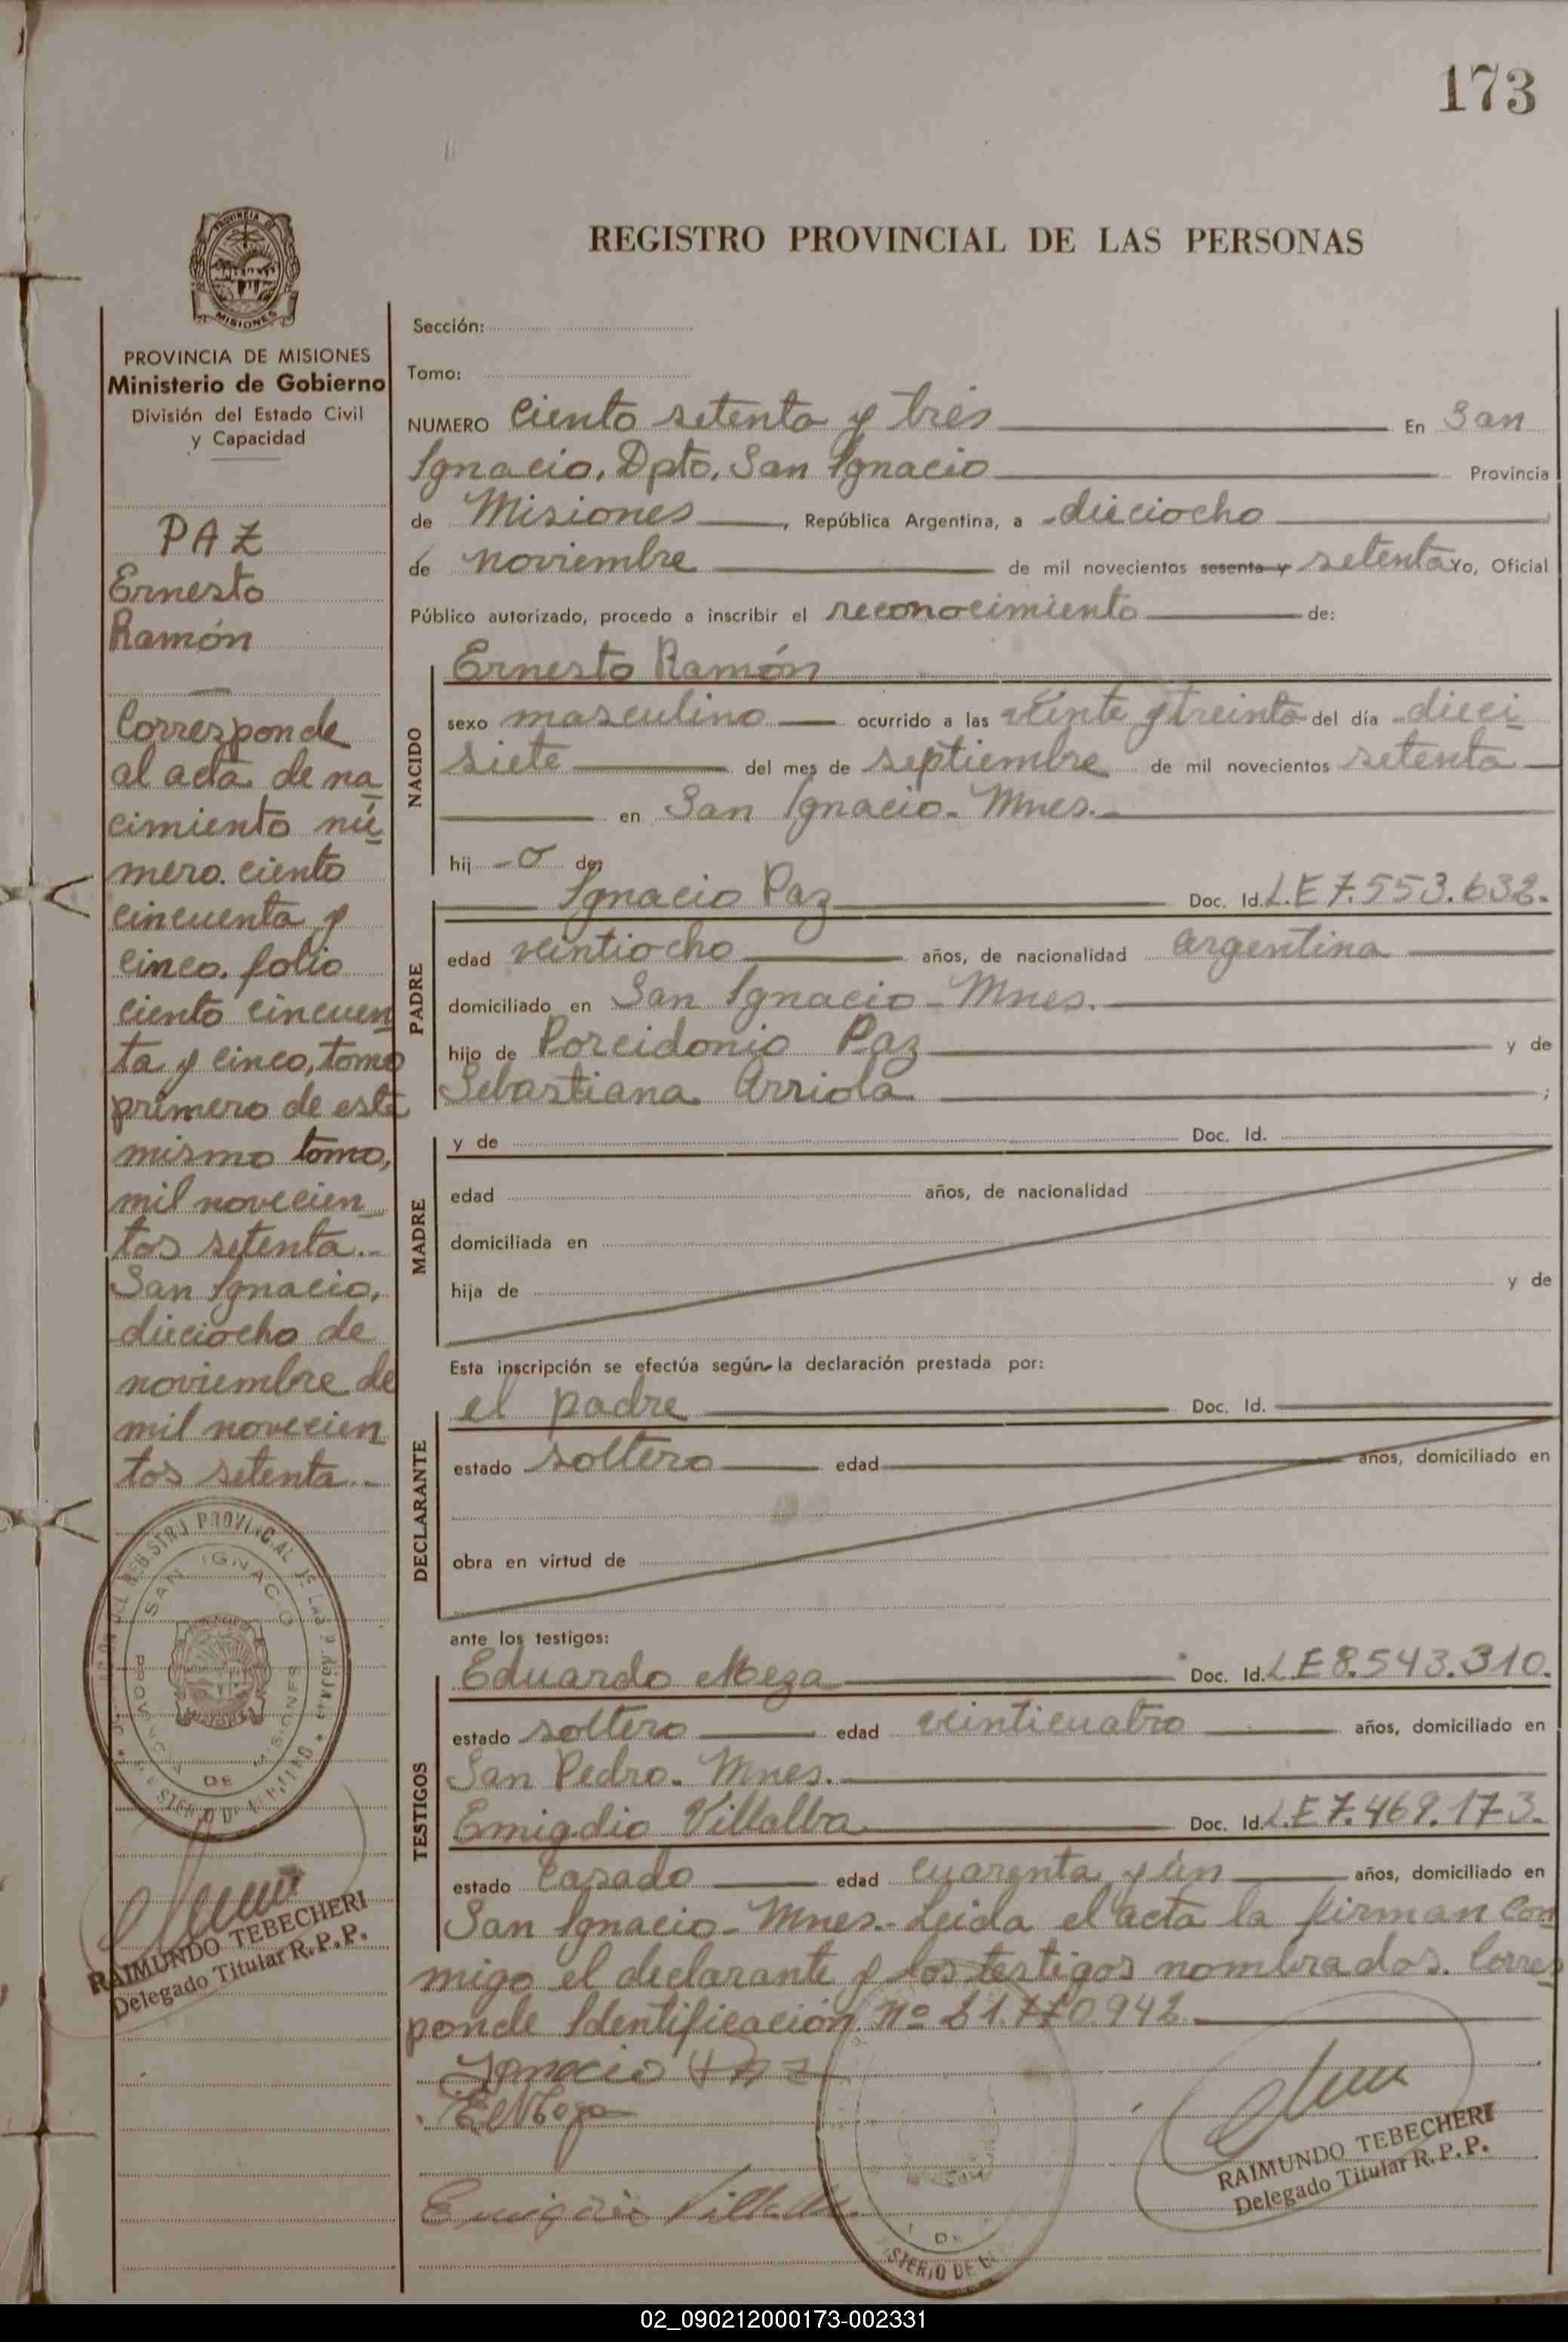 173
REGISTRO PROVINCIAL DE LAS PERSONAS
MISIONES
PROVINCIA DE MISIONES
Ministerio de Gobierno
División del Estado Civil
y Capacidad
PAZ
Ernesto
Ramón
Corresponde
al acta de na
cimiento nú
mero. ciento
cincuenta y
cinco. folio
ciento cincuen
ta y cinco, tomo
primero de este
mismo tomo,
mil novecien
tos setenta.-
San Ignacio,
dieciocho de
noviembre de
mil novecien
tos setenta.-
SAN IGNACIO
PROVINCIA DE MISIONES
RAIMUNDO TEBECHERI
Delegado Titular R.P.P.
Sección:
Tomo:
NUMERO Ciento setenta y tres En San
Ignacio, Dpto. San Ignacio Provincia
de Misiones, República Argentina, a dieciocho
de noviembre de mil novecientos sesenta y setenta Yo, Oficial
Público autorizado, procedo a inscribir el reconocimiento de:
NACIDO
Ernesto Ramón
sexo masculino ocurrido a las veinte y treinta del día dieci
siete del mes de septiembre de mil novecientos setenta
en San Ignacio - Mnes.
hij o de:
PADRE
Ignacio Paz Doc. Id. L.E 7.553.632.
edad veintiocho años, de nacionalidad argentina
domiciliado en San Ignacio - Mnes.
hijo de Porcidonio Paz y de
Sebastiana Arriola ;
MADRE
y de Doc. Id.
edad años, de nacionalidad
domiciliada en
hija de y de
Esta inscripción se efectúa según la declaración prestada por:
DECLARANTE
el padre Doc. Id.
estado soltero edad años, domiciliado en
obra en virtud de
ante los testigos:
TESTIGOS
Eduardo Meza Doc. Id. L.E 8.543.310.
estado soltero edad veinticuatro años, domiciliado en
San Pedro. Mnes.
Emigdio Villalba Doc. Id. L.E 7.469.173.
estado casado edad cuarenta y un años, domiciliado en
San Ignacio - Mnes.- Leida el acta la firman con
migo el declarante y los testigos nombrados. Corres
ponde Identificación Nº 21.770.942.
Ignacio Paz
Emigdio Villalba
RAIMUNDO TEBECHERI
Delegado Titular R.P.P.
02_090212000173-002331